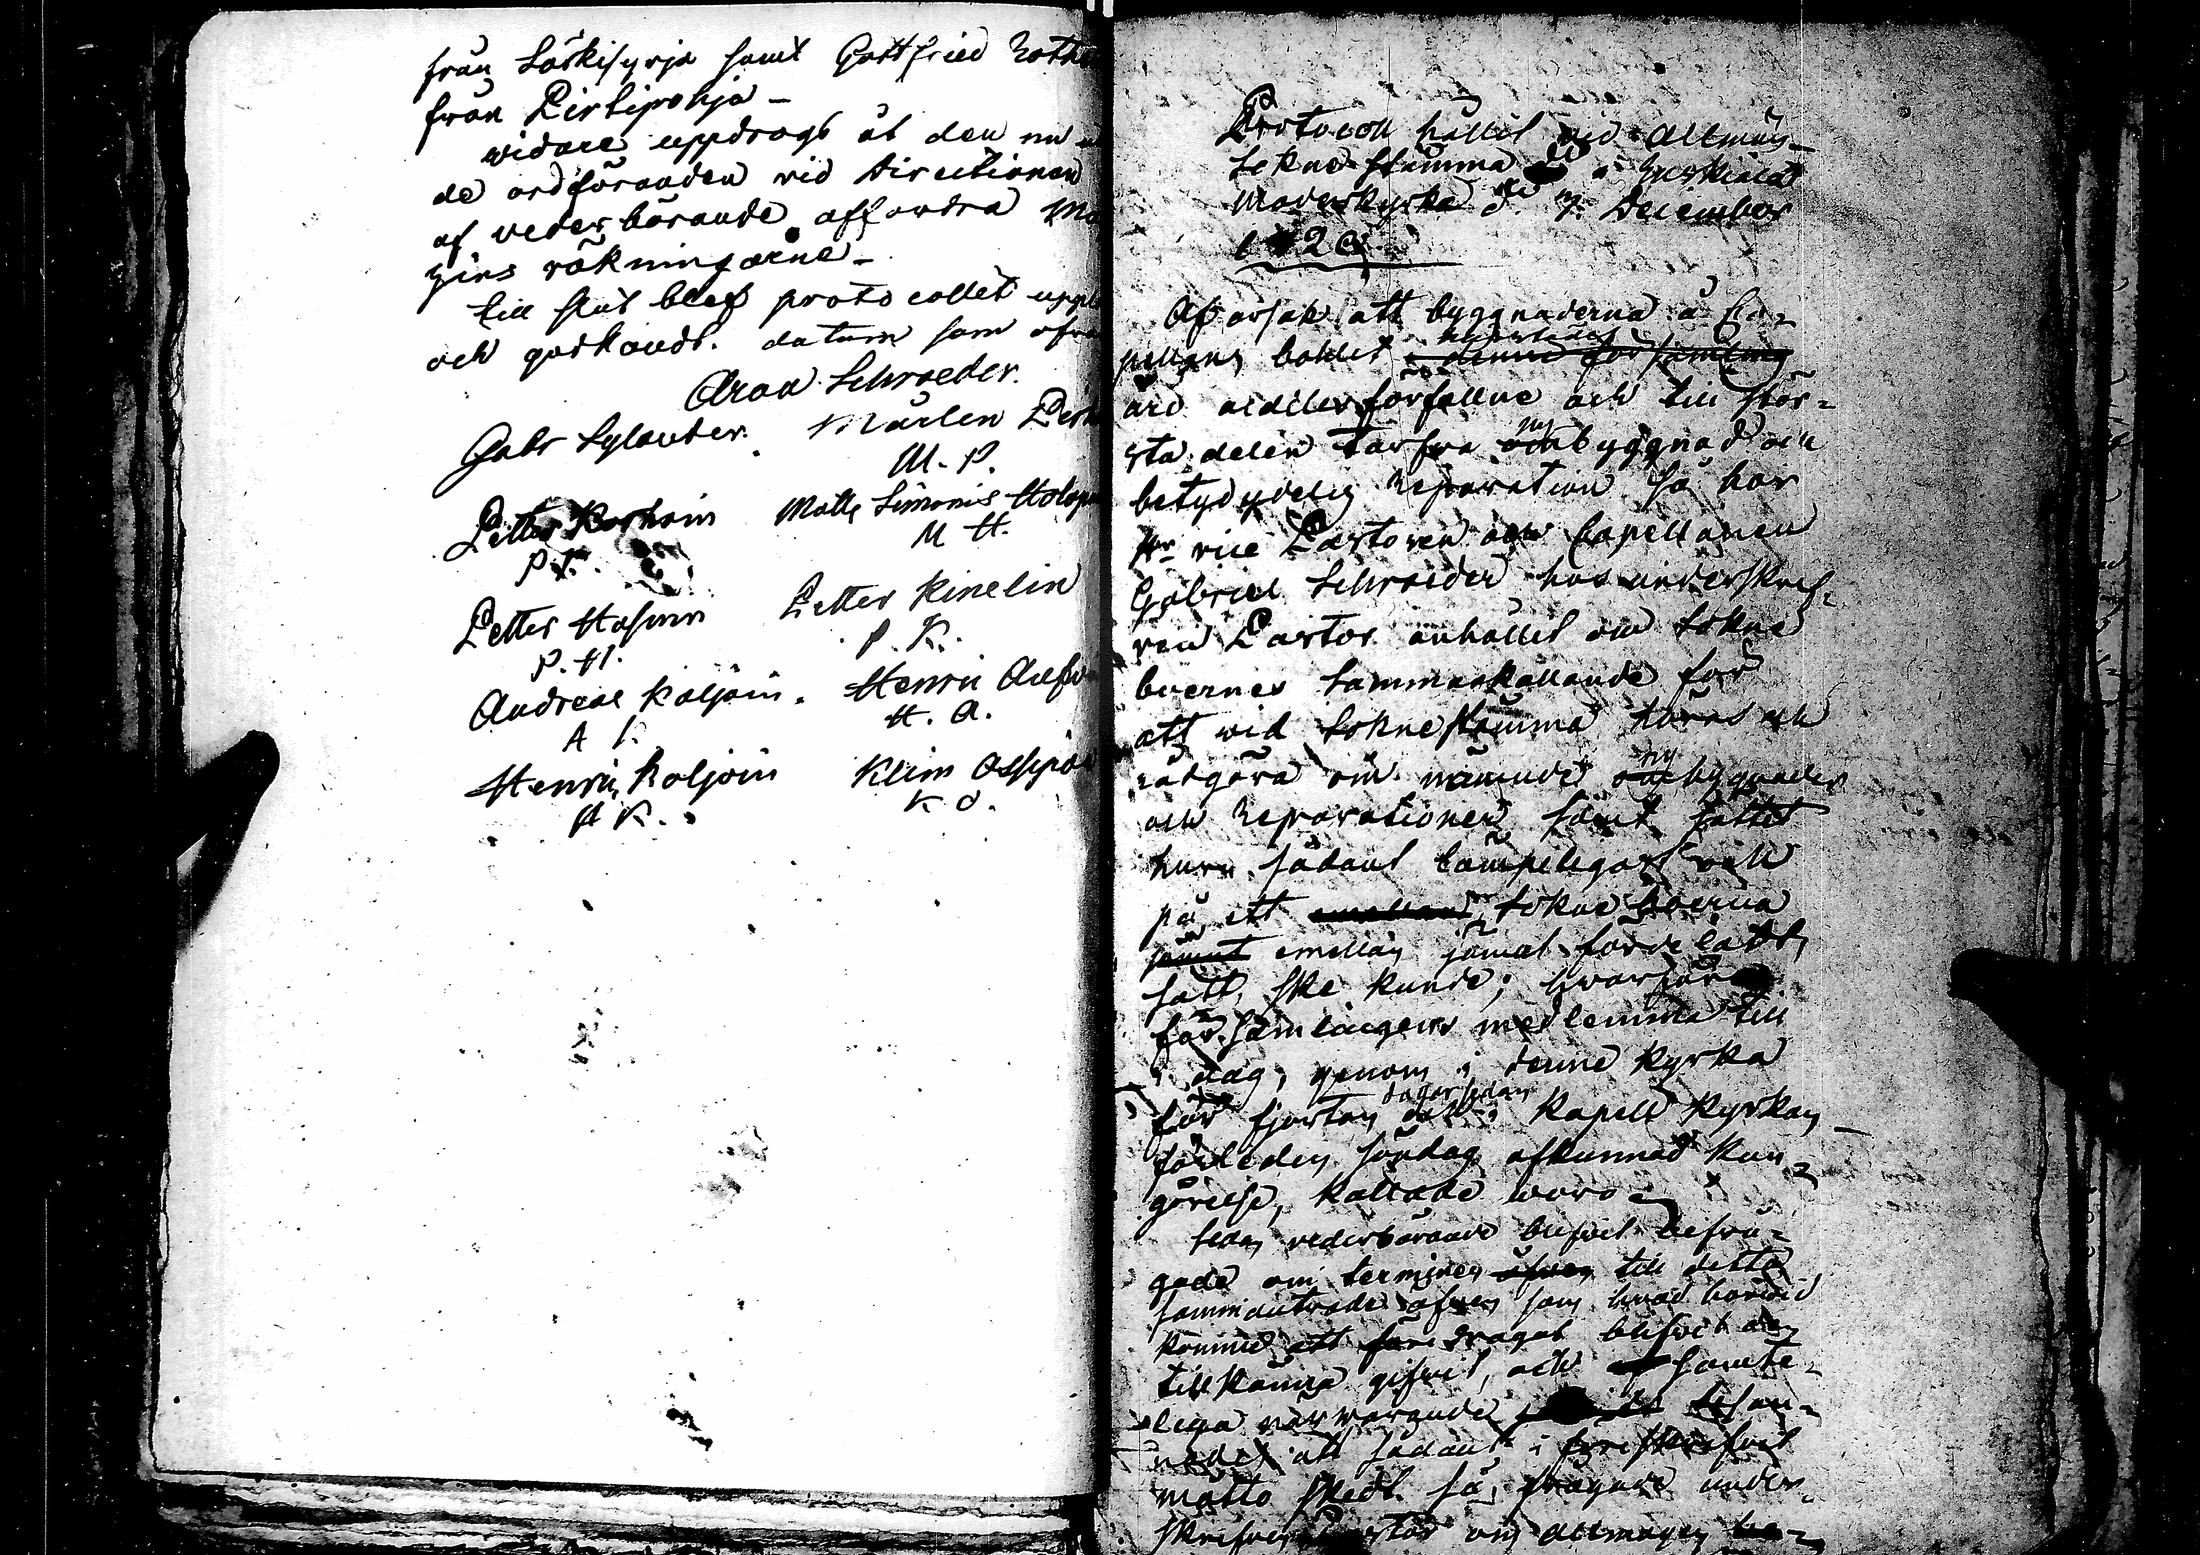 från Särkisyrja samt Gottfried
från Pirtipohja –
widare uppdrogs åt den nu
de ordföranden vid Directionen
af vederbörande affordra Ma
zins räkningarne –
till slut blef protocollet uppl
och godkändt. datum som ofva
Aron Schroeder.
Gabr Sylander. Mårten
M. P.
Petter Korhoin Matts Simonis
P. K. M H.
Petter Petter Kinelin
P. H. P. K.
Andreas Koljoin. Henric
A K. H. A.
Henric Koljoin Klim Ossipo
H K. K O.
Protocoll hållit vid Allmän
Sokne stämma i
Moderkyrka d. 7 December
182
Af orsak att byggnaderna å Ca-
pellans bohlet i denne församling
äro aldeles förfallne och till stör-
sta delen tarfva ny ombyggnad och
betydelig Reparation så har
Hr vice Pastoren och Capellanen
Gabriel Schroeder hos underskref-
ven Pastor anhållit om Sokne
boernes sammankallande för
att vid Sokne stämma höras och
rådgöra om nämnde ny ombyggnader
och Reparationer samt sättet
huru sådant lämpeligast och
på ett Sokne boerna
jämnt emellan jämt fördeladt
sätt, ske kunde; hvarföre
församlingens medlemmar till
i dag, genom i denne kyrka
för fjorton dagar sedan och i Kapell kyrkan
förleden söndag afkunnad kun-
görelse, kallade woro –
Sedan vederbörande blifvit befrå-
gade om terminen äfven till detta
sammanträde äfven som hvad härvid
komme att föredragas blifvit dem
tillkänna gifvit, och samte-
liga närvarande besan-
nadet att sådant i föreskrifvit
måtto skedt. så frågade under-
skrefven Pastor om Allmogen be-